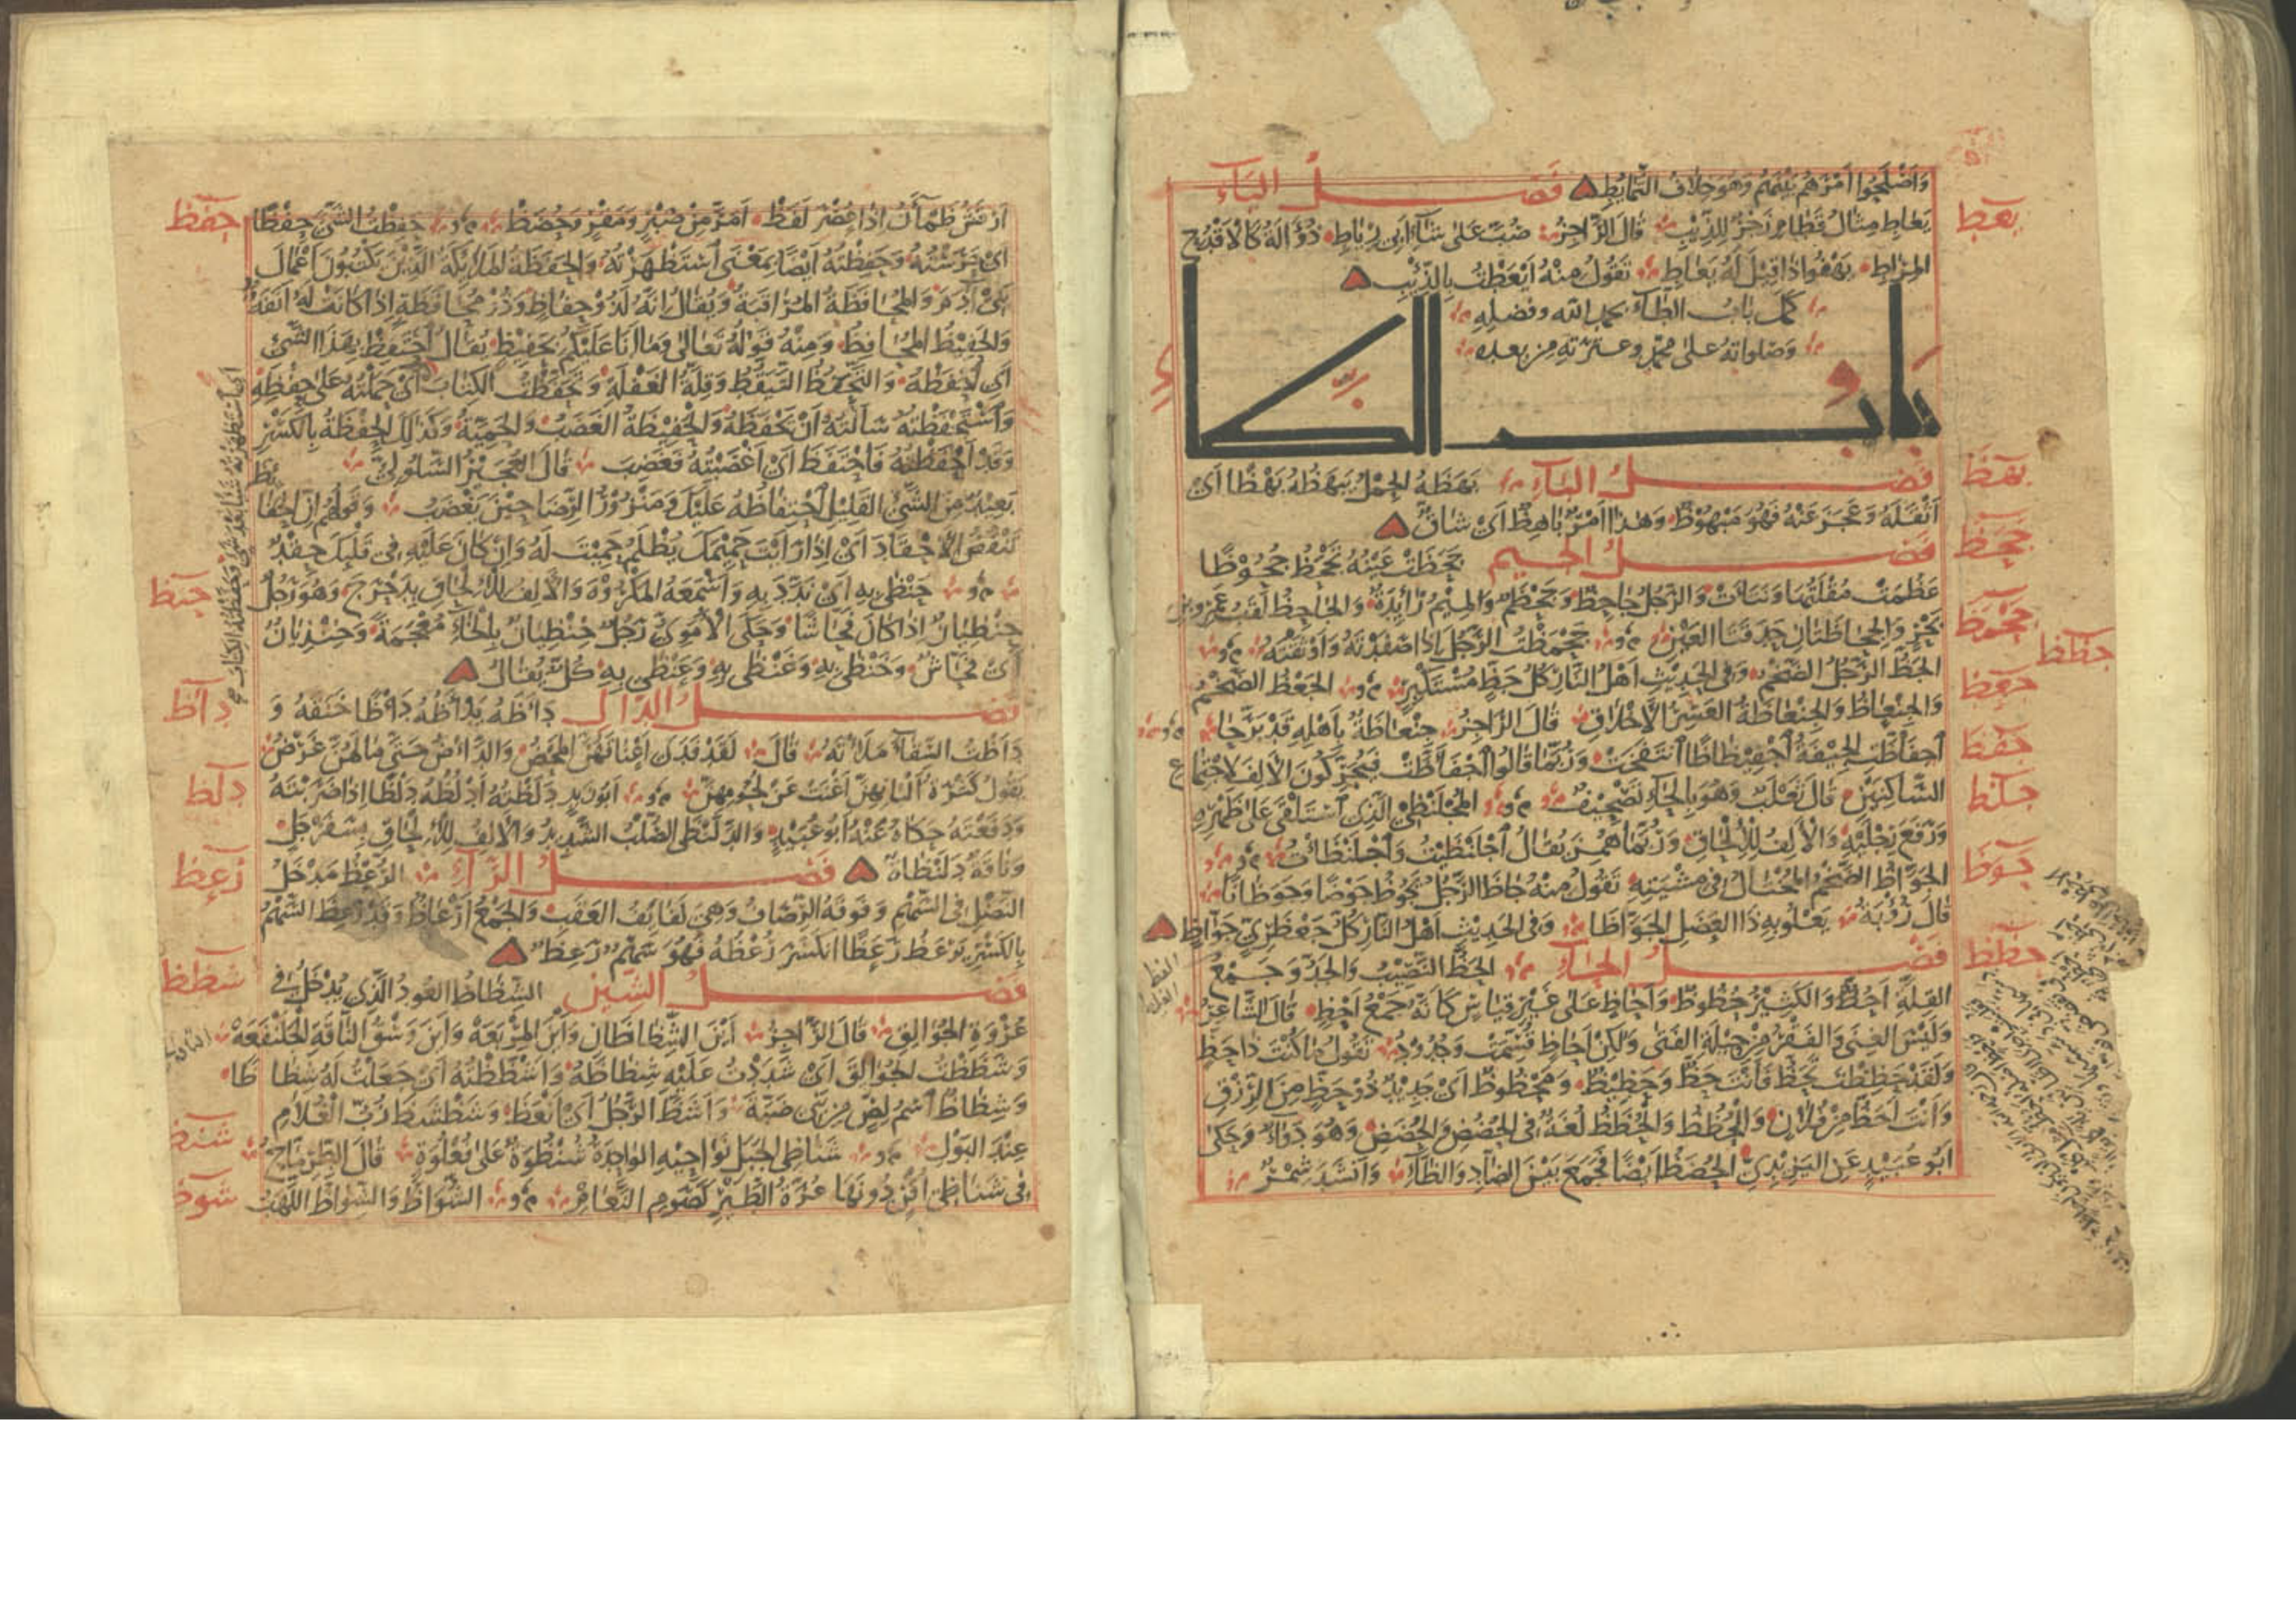 وَاَصْلَحُوا اَمْرَهُمْ بَيْنَهُمْ وَهُوَ خِلَافُ التَّمَايُطِ فَصْلُ اليَاءِ
يَعَاطِ مِثَالُ قَطَامِ زَجْرٌ لِلذِّئْبِ قَالَ الرَّاجِزُ صُبَّ عَلَى شَاءِ اَبِي رِيَاطِ ذُؤَالَةٌ كَالْاَقْدُحِ
المِرَاطِ يَهْفُو اِذَا قِيْلَ لَهُ يَعَاطِ تَقُولُ مِنْهُ اَيْعَطْتُ بِالذِّئْبِ
كمل باب الطاء بحمد الله وفضله
وصلواته على محمد وعترته من بعده
باب الظاء
فَصْلُ البَاءِ بَهَظَهُ الحِمْلُ يَبْهَظُهُ بَهْظًا اَيْ
اَثْقَلَهُ وَعَجَزَ عَنْهُ فَهُوَ مَبْهُوظٌ وَهٰذَا اَمْرٌ بَاهِظٌ اَيْ شَاقٌّ
فَصْلُ الجِيْمِ جَحَظَتْ عَيْنُهُ تَجْحَظُ جُحُوْظًا
عَظُمَتْ مُقْلَتُهَا وَنَتَأَتْ وَالرَّجُلُ جَاحِظٌ وَجَحْظَمٌ وَالمِيْمُ زَائِدَةٌ وَالجَاحِظُ لَقَبُ عَمْرِو بْنِ
بَحْرٍ وَالجَاحِظَتَانِ حَدَقَتَا العَيْنِ جَحْمَظْتُ الرَّجُلَ اِذَا صَفَدْتَهُ وَاَوْثَقْتَهُ
الجَظُّ الرَّجُلُ الضَّخْمُ وَفِي الحَدِيْثِ اَهْلُ النَّارِ كُلُّ جَظٍّ مُسْتَكْبِرٍ الجَعْظُ الضَّخْمُ
وَالجِنْعَاظُ وَالجِنْعَاظَةُ العَسِرُ الْاَخْلَاقِ قَالَ الرَّاجِزُ جِنْعَاظَةٌ بِاَهْلِهِ قَدْ بَرَّحَا
اجْفَاَظَّتِ الجِيْفَةُ اجْفِيْظَاظًا انْتَفَخَتْ وَرُبَّمَا قَالُوا اجْفَاَظَّتْ فَيُحَرِّكُونَ الْاَلِفَ لِاجْتِمَاعِ
السَّاكِنَيْنِ قَالَ ثَعْلَبٌ وَهُوَ بِالحَاءِ تَصْحِيْفٌ المُجْلَنْظِي الَّذِي اسْتَلْقَى عَلَى ظَهْرِهِ
وَرَفَعَ رِجْلَيْهِ وَالْاَلِفُ لِلْاِلْحَاقِ وَرُبَّمَا هُمِزَ يُقَالُ اجْلَنْظَيْتُ وَاجْلَنْظَأْتُ
الجَوَّاظُ الضَّخْمُ المُخْتَالُ فِي مِشْيَتِهِ تَقُولُ مِنْهُ جَاظَ الرَّجُلُ يَجُوْظُ جَوْظًا وَجَوَظَانًا
قَالَ رُؤْبَةُ يَعْلُو بِهِ ذَا العَضَلِ الجَوَّاظَا وَفِي الحَدِيْثِ اَهْلُ النَّارِ كُلُّ جَعْظَرِيٍّ جَوَّاظٍ
فَصْلُ الحَاءِ الحَظُّ النَّصِيْبُ وَالجَدُّ وَجَمْعُ
القِلَّةِ اَحُظٌّ وَالكَثِيْرُ حُظُوظٌ وَاَحَاظٍ عَلَى غَيْرِ قِيَاسٍ كَاَنَّهُ جَمْعُ اَحْظٍ قَالَ الشَّاعِرُ
وَلَيْسَ الغِنَى وَالفَقْرُ مِنْ حِيْلَةِ الفَتَى وَلٰكِنْ اَحَاظٍ قُسِّمَتْ وَجُدُودُ تَقُولُ مَا كُنْتَ ذَا حَظٍّ
وَلَقَدْ حَظِظْتَ تَحَظُّ فَاَنْتَ حَظٌّ وَحَظِيْظٌ وَمَحْظُوظٌ اَيْ جَدِيْدٌ ذُوْ حَظٍّ مِنَ الرِّزْقِ
وَاَنْتَ اَحَظُّ مِنْ فُلَانٍ وَالحُظُظُ وَالحُظَظُ لُغَةٌ فِي الحُضُضِ وَالحُضَضِ وَهُوَ دَوَاءٌ وَحَكَى
اَبُو عُبَيْدٍ عَنِ اليَزِيْدِيِّ الحُضَظُ اَيْضًا فَجَمَعَ بَيْنَ الضَّادِ وَالظَّاءِ وَاَنْشَدَ شَمِرٌ
يعط
بهظ
جحظ
جحمظ
جظظ
جعظ
جفظ
جلظ
جوظ
حظظ
اَرْقَشَ ظَمْاٰنَ اِذَا عُصِرَ لَفَظْ اَمَرَّ مِنْ صَبْرٍ وَمَقْرٍ وَحُضَظْ حَفِظْتُ الشَّيْءَ حِفْظًا
اَيْ حَرَسْتُهُ وَحَفِظْتُهُ اَيْضًا بِمَعْنَى اسْتَظْهَرْتُهُ وَالحَفَظَةُ المَلَائِكَةُ الَّذِيْنَ يَكْتُبُونَ اَعْمَالَ
بَنِي اٰدَمَ وَالمُحَافَظَةُ المُرَاقَبَةُ وَيُقَالُ اِنَّهُ لَذُوْ حِفَاظٍ وَذُوْ مُحَافَظَةٍ اِذَا كَانَتْ لَهُ اَنَفَةٌ
وَالحَفِيْظُ المُحَافِظُ وَمِنْهُ قَوْلُهُ تَعَالَى وَمَا اَنَا عَلَيْكُمْ بِحَفِيْظٍ يُقَالُ احْتَفِظْ بِهٰذَا الشَّيْءِ
اَيِ احْفَظْهُ وَالتَّحَفُّظُ التَّيَقُّظُ وَقِلَّةُ الغَفْلَةِ وَتَحَفَّظْتُ الكِتَابَ اَيْ حَمَلْتُهُ عَلَى حِفْظِهِ
وَاسْتَحْفَظْتُهُ سَاَلْتُهُ اَنْ يَحْفَظَهُ وَالحَفِيْظَةُ الغَضَبُ وَالحَمِيَّةُ وَكَذٰلِكَ الحِفْظَةُ بِالكَسْرِ
وَقَدْ اَحْفَظْتُهُ فَاحْتَفَظَ اَيْ اَغْضَبْتُهُ فَغَضِبَ قَالَ العُجَيْرُ السَّلُولِيُّ
بَعِيْدٌ مِنَ الشَّيْءِ القَلِيْلِ احْتِفَاظُهُ عَلَيْكَ وَمَنْزُوْرُ الرِّضَا حِيْنَ يَغْضَبُ وَقَوْلُهُمْ اِنَّ الحَفَائِظَ
تَنْقُضُ الْاَحْقَادَ اَيْ اِذَا رَاَيْتَ حَمِيْمَكَ يُظْلَمُ حَمِيْتَ لَهُ وَاِنْ كَانَ عَلَيْهِ فِي قَلْبِكَ حِقْدٌ
حَنْظَى بِهِ اَيْ نَدَّدَ بِهِ وَاَسْمَعَهُ المَكْرُوْهَ وَالْاَلِفُ لِلْاِلْحَاقِ بِدَحْرَجَ وَهُوَ رَجُلٌ
حِنْظِيَانٌ اِذَا كَانَ فَحَّاشًا وَحَكَى الْاُمَوِيُّ رَجُلٌ خِنْظِيَانٌ بِالخَاءِ مُعْجَمَةً وَخِنْذِيَانٌ
اَيْ فَحَّاشٌ وَخَنْظَى بِهِ وَغَنْظَى بِهِ وَعَنْظَى بِهِ كُلٌّ يُقَالُ
فَصْلُ الدَّالِ دَاَظَهُ يَدْاَظُهُ دَاْظًا خَنَقَهُ وَ
دَاَظْتُ السِّقَاءَ مَلَأْتُهُ قَالَ لَقَدْ فَدَى اَعْنَاقَهُنَّ المَحْضُ وَالدَّاْضُ حَتَّى مَا لَهُنَّ غَرْضُ
يَقُولُ كَثْرَةُ اَلْبَانِهِنَّ اَغْنَتْ عَنْ لُحُومِهِنَّ اَبُو زَيْدٍ دَلَظْتُهُ اَدْلِظُهُ دَلْظًا اِذَا ضَرَبْتَهُ
وَدَفَعْتَهُ حَكَاهُ عَنْهُ اَبُو عُبَيْدٍ وَالدَّلَنْظَى الصُّلْبُ الشَّدِيْدُ وَالْاَلِفُ لِلْاِلْحَاقِ بِسَفَرْجَلٍ
وَنَاقَةٌ دَلَنْظَاةٌ فَصْلُ الرَّاءِ الرُّعْظُ مَدْخَلُ
النَّصْلِ فِي السَّهْمِ وَفَوْقَهُ الرِّصَافُ وَهِيَ لَفَائِفُ العَقَبِ وَالجَمْعُ اَرْعَاظٌ وَقَدْ رَعِظَ السَّهْمُ
بِالكَسْرِ يَرْعَظُ رَعَظًا انْكَسَرَ رُعْظُهُ فَهُوَ سَهْمٌ رَعِظٌ
فَصْلُ الشِّيْنِ الشِّظَاظُ العُودُ الَّذِي يُدْخَلُ فِي
عُرْوَةِ الجُوَالِقِ قَالَ الرَّاجِزُ اَيْنَ الشِّظَاظَانِ وَاَيْنَ المِرْبَعَهْ وَاَيْنَ وَسْقُ النَّاقَةِ الجَلَنْفَعَهْ
وَشَظَظْتُ الجُوَالِقَ اَيْ شَدَدْتُ عَلَيْهِ شِظَاظَهُ وَاَشْظَظْتُهُ اَيْ جَعَلْتُ لَهُ شِظَاظًا
وَشِظَاظٌ اسْمُ لِصٍّ مِنْ بَنِي ضَبَّةَ وَاَشَظَّ الرَّجُلُ اَيْ اَنْعَظَ وَشَظْشَظَ زُبُّ الْغُلَامِ
عِنْدَ البَوْلِ شَنَاظِي الجَبَلِ نَوَاحِيْهِ الوَاحِدَةُ شُنْظُوَةٌ عَلَى فُعْلُوَةٍ قَالَ الطِّرِمَّاحُ
فِي شَنَاظِي اُقَنٍ دُوْنَهَا عُرَّةُ الطَّيْرِ كَصَوْمِ النَّعَامِ الشُّوَاظُ وَالشِّوَاظُ اللَّهَبُ
حفظ
حنظ
دأظ
دلظ
رعظ
شظظ
شنظ
شوظ